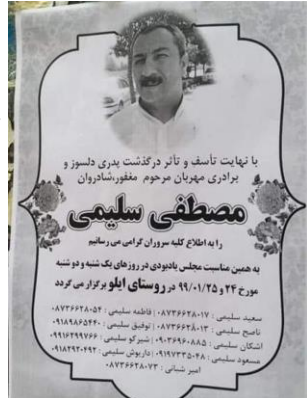 با نهایت تأسف و تأثر درگذشت پدری دلسوز و
برادری مهربان مرحوم مغفور،شادروان
مصطفی سلیمی
را به اطلاع کلیه سروران گرامی می رسانیم
به همین مناسبت مجلس یادبودی در روزهای یک شنبه و دو شنبه
مورخ ۲۴ و ۹۹/۰۱/۲۵ در روستای ایلو برگزار می گردد
سعید سلیمی : ۰۸۷۳۶۶۲۸۰۱۷ فاطمه سلیمی : ۰۸۷۳۶۶۲۸۰۵۴
ناصح سلیمی : ۰۸۷۳۶۶۲۸۰۱۳ توفیق سلیمی : ۰۹۱۸۹۸۶۵۴۴۰
اشکان سلیمی : ۰۹۰۳۶۹۶۰۸۸۵ شیرکو سلیمی : ۰۹۹۱۶۴۹۹۷۶۶
مسعود سلیمی : ۰۹۱۹۷۳۳۵۰۴۸ داریوش سلیمی : ۰۹۱۸۲۹۲۰۴۹۲
امیر شبانی : ۰۸۷۳۶۶۲۸۰۷۳